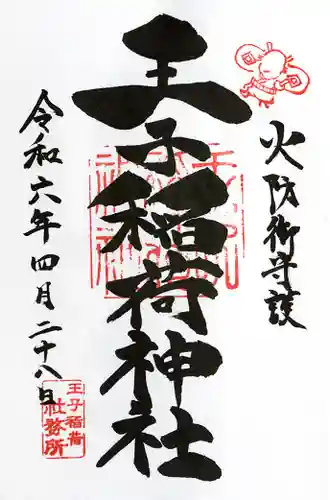 火防御守護
王子稲荷神社
令和六年四月二十八日
王子稲荷
社務所